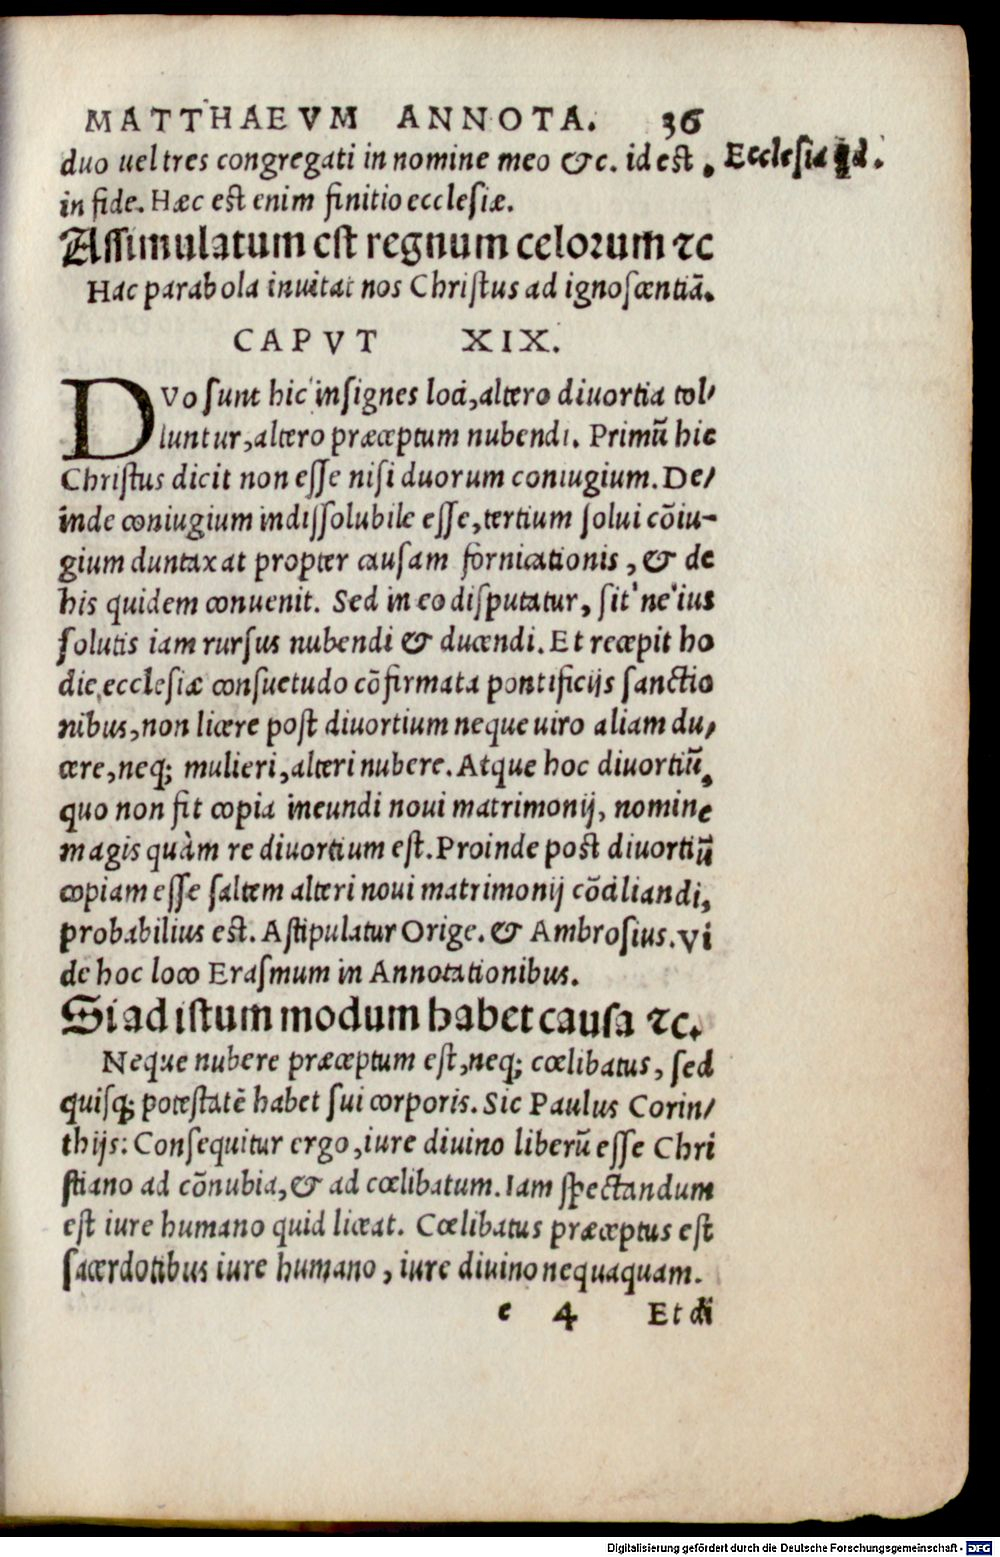 MATTHAEVM ANNOTA. 36
duo uel tres congregati in nomine meo &c. id est . Ecclesia qd.
in fide. Hæc est enim finitio ecclesiæ.
Assimulatum est regnum celorum ⁊c
Hac parabola inuitat nos Christus ad ignoscentiā.
CAPVT XIX.
DVo sunt hic insignes loci, altero diuortia tol/
luntur, altero præceptum nubendi. Primū hic
Christus dicit non esse nisi duorum coniugium. De/
inde coniugium indissolubile esse, tertium solui cōiu-
gium duntaxat propter causam fornicationis, & de
his quidem conuenit. Sed in eo disputatur, sit ne ius
solutis iam rursus nubendi & ducendi. Et recepit ho
die ecclesiæ consuetudo cōfirmata pontificijs sanctio
nibus, non licere post diuortium neque uiro aliam du/
cere, neq; mulieri, alteri nubere. Atque hoc diuortiū,
quo non fit copia ineundi noui matrimonij, nomine
magis quàm re diuortium est. Proinde post diuortiū
copiam esse saltem alteri noui matrimonij cōciliandi,
probabilius est. Astipulatur Orige. & Ambrosius. Vi
de hoc loco Erasmum in Annotationibus.
Si ad istum modum habet causa ⁊c.
Neque nubere præceptum est, neq; cœlibatus, sed
quisq; potestatē habet sui corporis. Sic Paulus Corin/
thijs: Consequitur ergo, iure diuino liberū esse Chri
stiano ad cōnubia, & ad cœlibatum. Iam spectandum
est iure humano quid liceat. Cœlibatus præceptus est
sacerdotibus iure humano, iure diuino nequaquam.
e 4 Et di
Digitalisierung gefördert durch die Deutsche Forschungsgemeinschaft - DFG